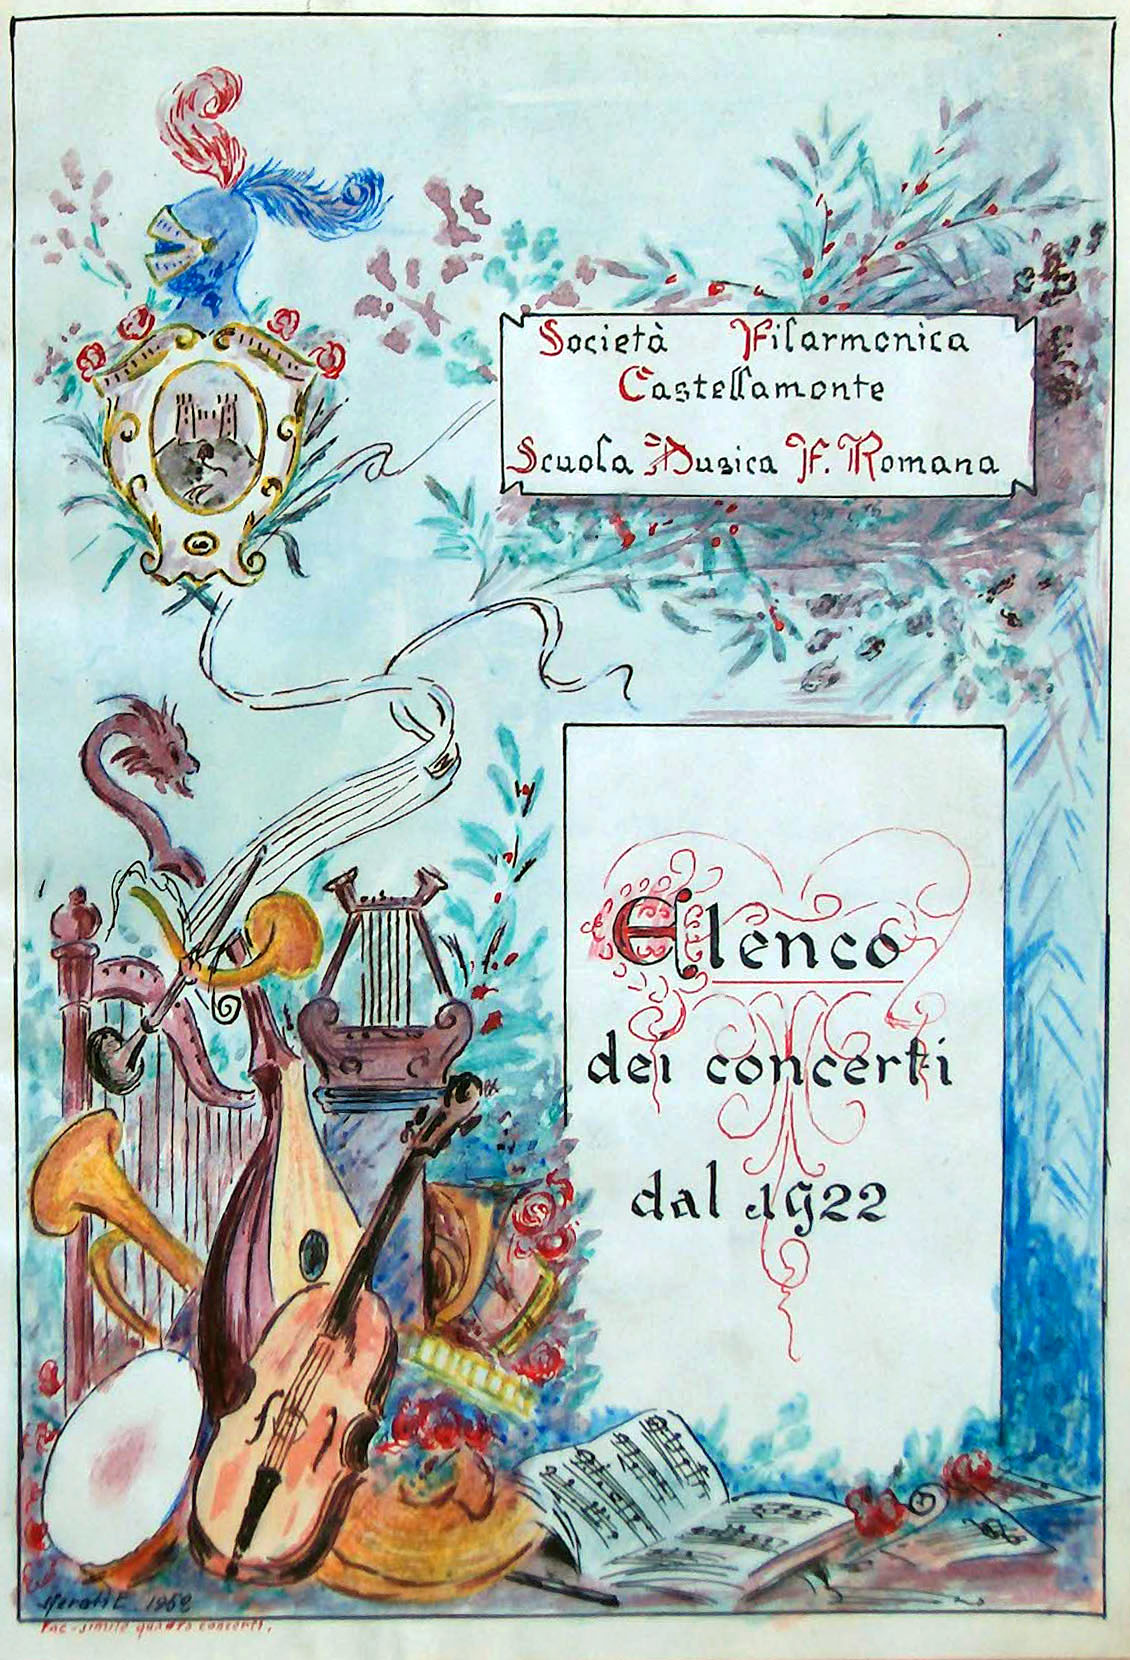 Società Filarmonica
Castellamonte
Scuola Musica F. Romana
Elenco
dei concerti
dal 1922
fac-simile quadro concerti.